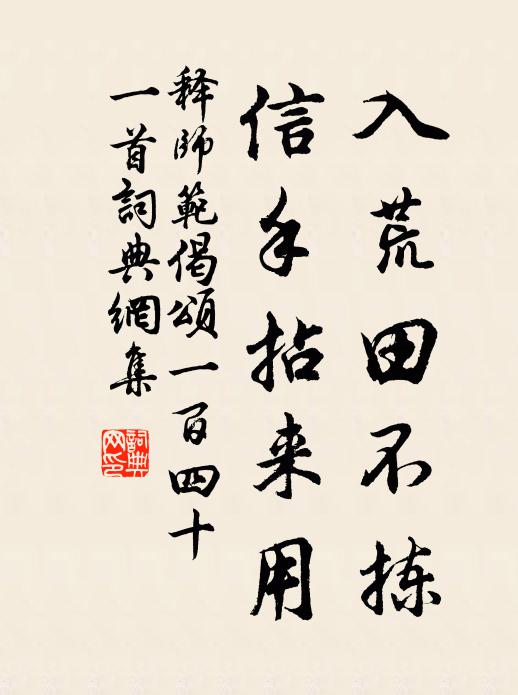 入荒田不拣
信手拈来用
释師範偈頌一百四十
一首詞典網集
詞典网印